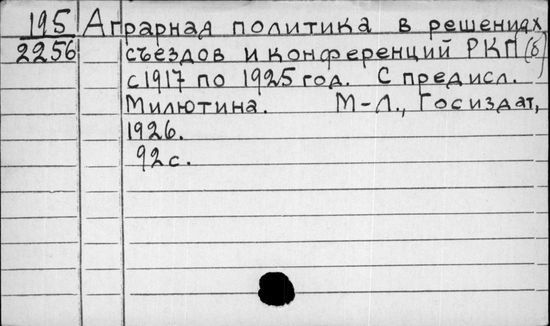 195 Аграрная политика в решениях
2256 съездов и конференций РКП(б)
с 1917 по 1925 год. С предисл.
Милютина. М-Л., Госиздат,
1926.
92 с.